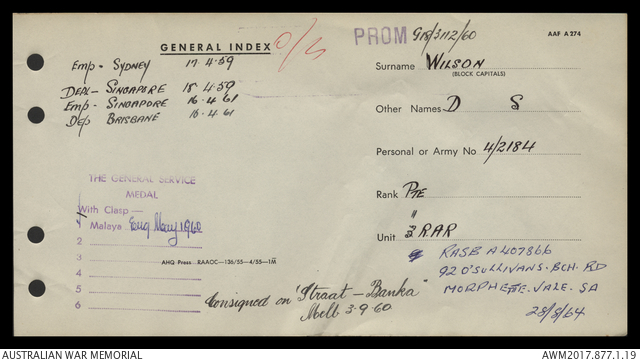 GENERAL INDEX
O/S
Emp - SYDNEY 17.4.59
DEPL - SINGAPORE 15.4.59
Emp - SINGAPORE 16.4.61
Dep BRISBANE 16.4.61
THE GENERAL SERVICE
MEDAL
With Clasp —
1 Malaya Eng May 1960
2
3
4
5
6
AHQ Press RAAOC—136/55—4/55—1M
Consigned on "Straat - Banka"
Melb 3.9.60
PROM
AAF A274
Surname WILSON
(BLOCK CAPITALS)
Other Names D S
Personal or Army No 4/2184
Rank PTE
Unit 3 RAR
RASB A407866
92 O'SULLIVANS. BCH. RD
MORPHETTE. VALE. SA
28/8/64
AUSTRALIAN WAR MEMORIAL
AWM2017.877.1.19